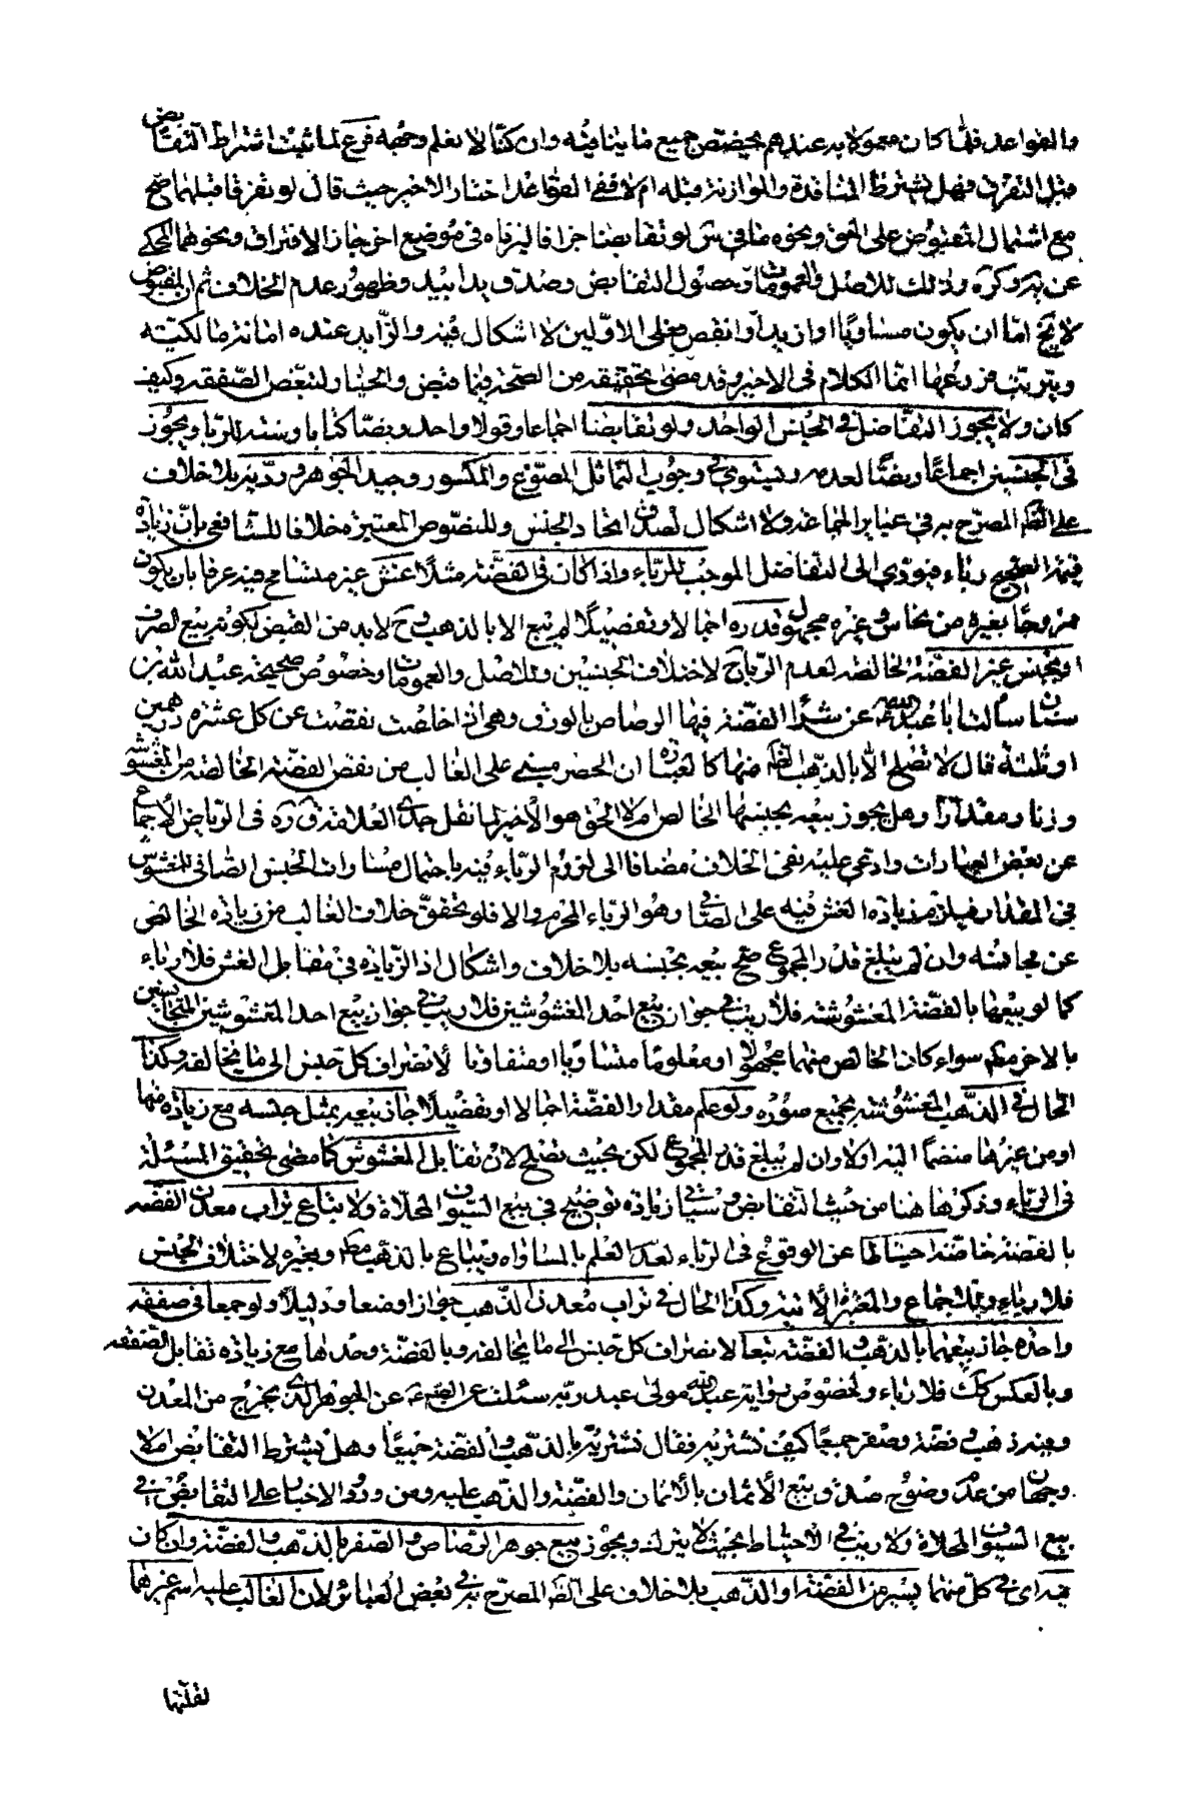 والقواعد فلما كان معمولا به عندهم يخصص جميع ما ينافيه وان كنا لا نعلم وجهه فرع لما ثبت اشتراط التقابض
قبل التفرق فهل يشترط المنافدة والموازنة قبله ام لا ففى القواعد اختار الاخير حيث قال لو تفرقا قبلهما صح
مع اشتمال المقبوض على الحق ونحوه ما في س لو تقابضا جزافا ليزناه في موضع اخر جاز الافتراق ونحوهما المحكى
عن ير وكره وذلك للاصل والعمومات وحصول التقابض وصدق يدا بيد وظهور عدم الخلاف ثم ان المقبوض
لا يخ اما ان يكون مساويا او ازيد او انقص فعلى الاولين لا اشكال فيه والزايد عنده امانة مالكية
ويترتب فروعها انما الكلام في الاخير وقد مضى تحقيقه من الصحة فيما قبض والخيار لتبعض الصفقة وكيف
كان ولا يجوز التفاضل في الجنس الواحد ولو تقابضا اجماعا وقولا واحدا ونصا كتابا وسنة للرباء ويجوز
في الجنسين اجماعا ونصا لعدمه ويستوي في وجوب التماثل المصوغ والمكسور وجيد الجوهر ورديه بلا خلاف
على الظ المصرح به في عباير الجماعة ولا اشكال لصدق اتحاد الجنس وللنصوص المعتبرة خلافا للشافعى بان زيادة
قيمة الصحيح رباء فيؤدي الى التفاضل الموجب للرباء واذا كان في الفضة مثلا غش غير متسامح فيه عرفا بان يكون
ممزوجا بغيره من نحاس وغيره مجهول قدره اجمالا وتفصيلا لم تبع الا بالذهب وح لا بد من القبض لكونه بيع الصرف
او بجنس غير الفضة الخالصة لعدم الرباء ح لاختلاف الجنسين وللاصل والعمومات وخصوص صحيحة عبد الله بن
سنان سألت ابا عبد الله ع عن شراء الفضة فيها الرصاص بالورق وهى اذا خلصت نقصت عن كل عشرة درهمين
او ثلثة قال لا تصلح الا بالذهب الظ منها كالعبارة ان الحصر مبني على الغالب من نقص الفضة الخالصة من المغشوشة
وزنا ومقدارا وهل يجوز بيعه بجنسها الخالص ام لا الحق هو الاخير لما نقل جدى العلامة قدس سره في الرياض الاجماع
عن بعض العبارات وادعى عليه نفى الخلاف مضافا الى لزوم الرباء فيه باحتمال مساوات الجنس الصافى للمغشوش
في المقدار فيلزم زيادة الغش فيه على الصافي وهو الرباء المحرم والا فلو تحقق خلاف الغالب من زيادة الخالص
عن مجانسه وان لم يبلغ قدر المجموع صح بيعه بجنسه بلا خلاف واشكال اذ الزيادة في مقابل الغش فلا رباء
كما لو بيعها بالفضة المغشوشة فلا ريب في جواز بيع احد المغشوشين فلا ريب في جواز بيع احد المغشوشين المتجانسين
بالاخر مط سواء كان الخالص منهما مجهولا او معلوما متساويا او متفاوتا لانصراف كل جنس الى ما يخالفه وكذا
الحال في الذهب المغشوشة بجميع صوره ولو علم مقدار الفضة اجمالا او تفصيلا جاز بيعه بمثل جنسه مع زيادة منها
او من غيرها منضما اليه اولا وان لم يبلغ قدر المجموع لكن بحيث تصلح لان تقابل المغشوش كما مضى تحقيق المسئلة
في الرباء وذكرها هنا من حيث التقابض وسياتى زيادة توضيح في بيع السيوف المحلاة ولا يباع تراب معدن الفضة
بالفضة خاصة احتياطا عن الوقوع في الرباء لعدم العلم بالمساواة ويباع بالذهب مط وبغيره لاختلاف الجنس
فلا رباء وللاجماع والمعتبرة الاتية وكذا الحال في تراب معدن الذهب جوازا ومنعا ودليلا ولو جمعا في صفقة
واحدة جاز بيعهما بالذهب والفضة تبعا لانصراف كل جنس الى ما يخالفه وبالفضة وحدها مع زيادة تقابل الصفقة
وبالعكس كك فلا رباء ولخصوص رواية عبد الله مولى عبد ربه سئلت عن الص ع عن الجوهر الذي يخرج من المعدن
وفيه ذهب وفضة وصفر جميعا كيف نشتريه فقال نشتريه بالذهب والفضة جميعا وهل يشترط التقابض ام لا
وجهان من عدم وضوح صدق بيع الأثمان بالأثمان والفضة والذهب عليه ومن ورود الاخبار على التقابض في
بيع السيوف المحلاة ولا ريب في الاحتياط بحيث لا يترك ويجوز بيع جوهر الرصاص والصفر بالذهب والفضة وان كان
فيه اى في كل منهما يسير من الفضة او الذهب بلا خلاف على الظ المصرح به في بعض العبائر لان الغالب عليه اسم غيرهما
لقلتها